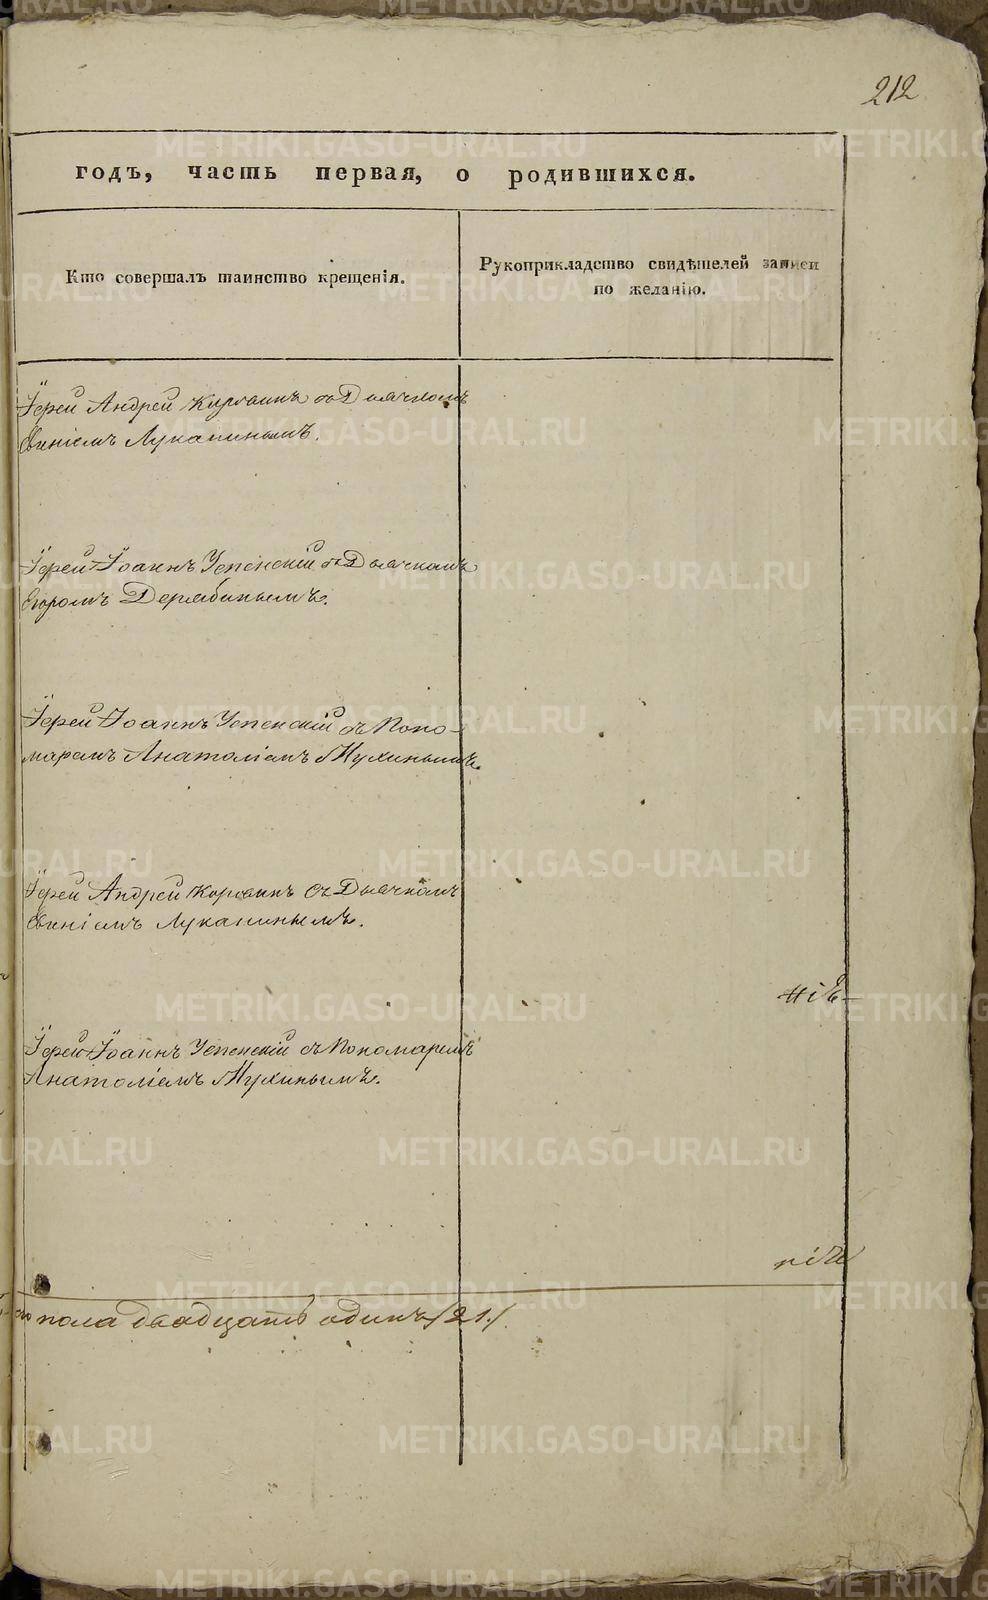 212
годъ, часть первая, о родившихся.
Кто совершалъ таинство крещенія.
Рукоприкладство свидѣтелей записи
по желанію.
Іерей Андрей съ Дьячкомъ
Лукапинымъ.
Іерей Іоаннъ Успенскій съ Дьячкомъ
Егоромъ Дерябинымъ.
Іерей Іоаннъ Успенскій съ Поно-
маремъ Анатоліемъ Мухинымъ.
Іерей Андрей съ Дьячкомъ
Лукапинымъ.
Іерей Іоаннъ Успенскій съ Пономаремъ
Анатоліемъ Мухинымъ.
пола двадцать одинъ /21./
METRIKI.GASO-URAL.RU